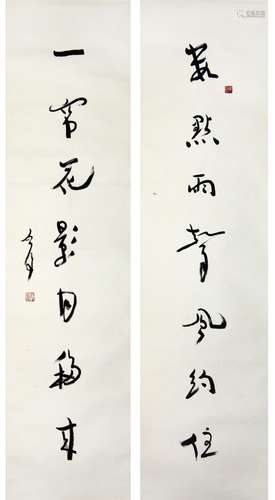 數點雨聲風約住
一帘花影月移來